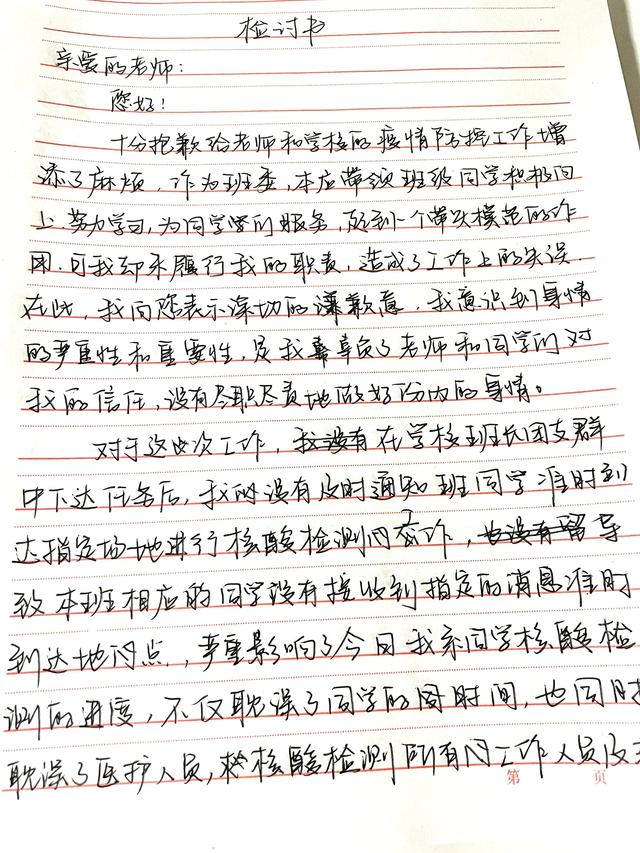 检讨书
亲爱的老师：
您好！
十分抱歉给老师和学校的疫情防控工作增
添了麻烦，作为班委，本应带领班级同学积极向
上，努力学习，为同学们服务，起到一个带头模范的作
用，可我却未履行我的职责，造成了工作上的失误．
在此，我向您表示深切的歉意，我意识到事情
的严重性和重要性，是我辜负了老师和同学们对
我的信任，没有尽职尽责地做好份内的事情。
对于这次工作，我没有在学校班长团支群
中下达任务后，我没有及时通知班同学准时到
达指定场地进行核酸检测的工作，也没有导
致本班相应的同学没有接收到指定的消息准时
到达地点，严重影响了今日我系同学核酸检
测的进度，不仅耽误了同学的时间，也同时
耽误了医护人员，核酸检测所有的工作人员及
第 页